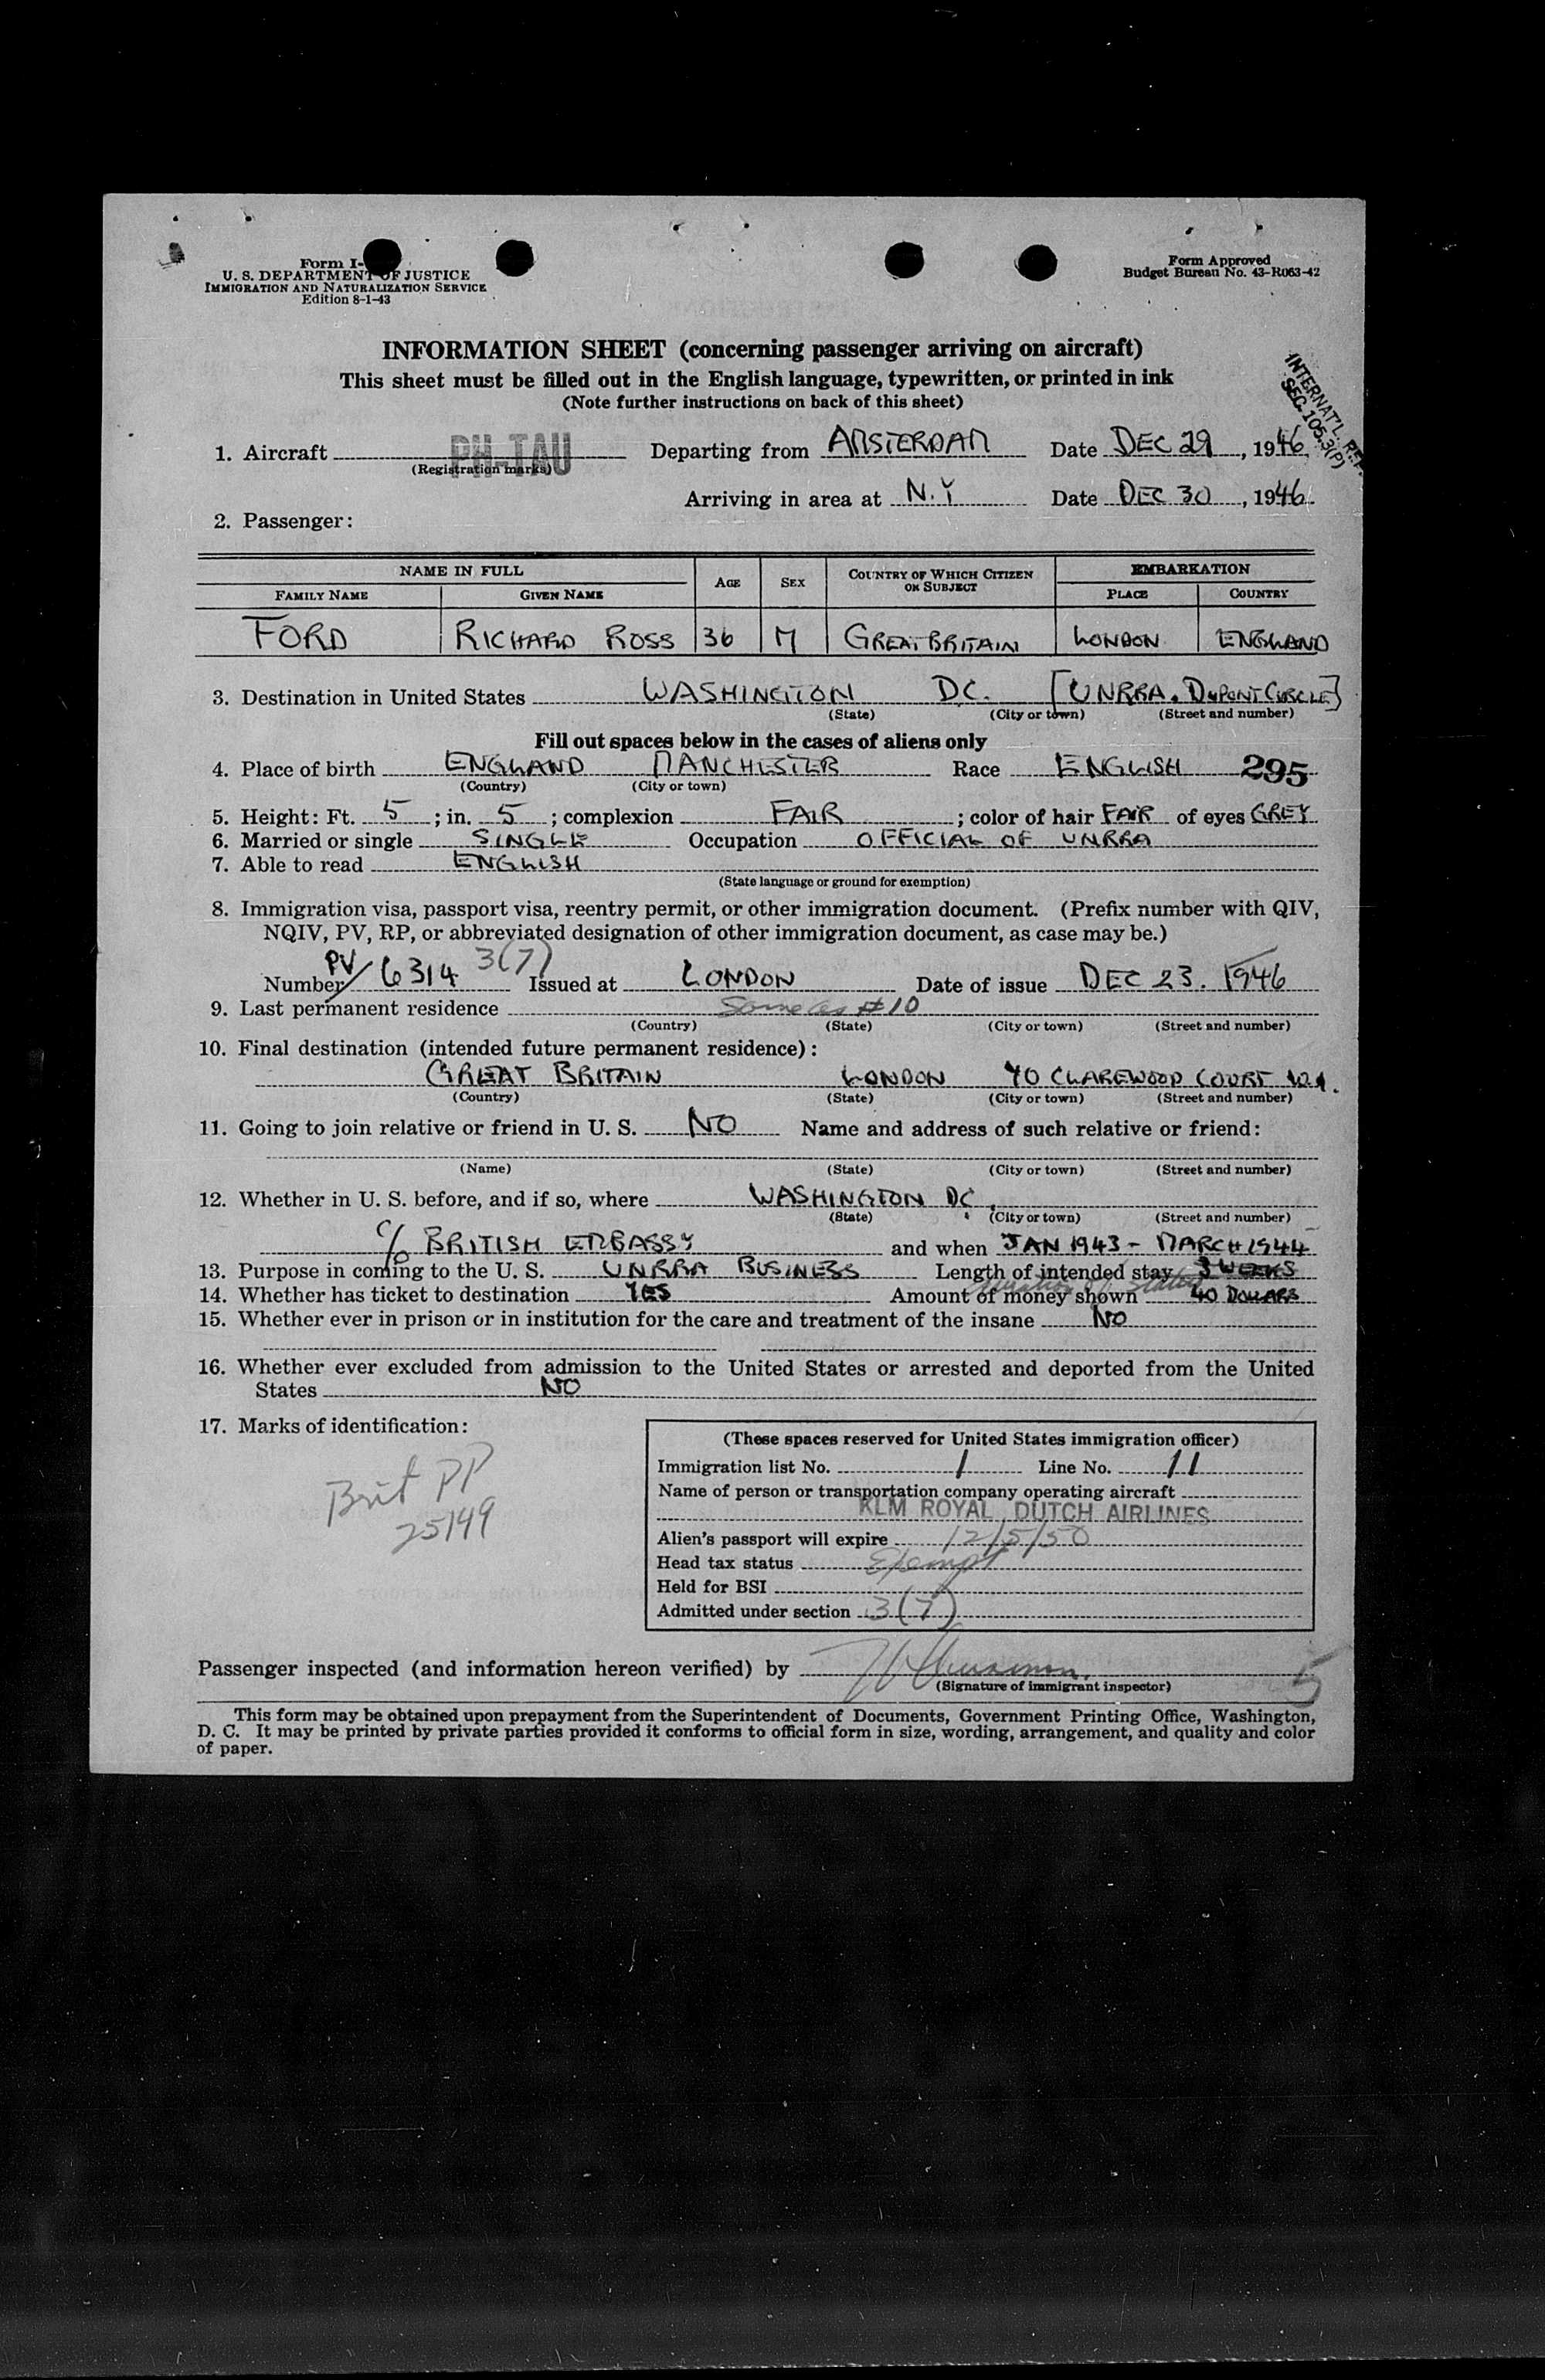 Form I-
U. S. DEPARTMENT OF JUSTICE
IMMIGRATION AND NATURALIZATION SERVICE
Edition 8-1-43
Form Approved
Budget Bureau No. 43-R063-42
INFORMATION SHEET (concerning passenger arriving on aircraft)
This sheet must be filled out in the English language, typewritten, or printed in ink
(Note further instructions on back of this sheet)
INTERNAT'L. REF.
SEC. 105.3(P)
1. Aircraft PH-TAU Departing from AMSTERDAM Date DEC 29, 1946.
(Registration marks)
Arriving in area at N.Y Date DEC 30, 1946.
2. Passenger:
NAME IN FULL AGE SEX COUNTRY OF WHICH CITIZEN OR SUBJECT EMBARKATION
FAMILY NAME GIVEN NAME PLACE COUNTRY
FORD RICHARD ROSS 36 M GREAT BRITAIN LONDON ENGLAND
3. Destination in United States WASHINGTON D.C. [UNRRA. DUPONT CIRCLE]
(State) (City or town) (Street and number)
Fill out spaces below in the cases of aliens only
4. Place of birth ENGLAND MANCHESTER Race ENGLISH 295
(Country) (City or town)
5. Height: Ft. 5; in. 5; complexion FAIR; color of hair FAIR of eyes GREY
6. Married or single SINGLE Occupation OFFICIAL OF UNRRA
7. Able to read ENGLISH
(State language or ground for exemption)
8. Immigration visa, passport visa, reentry permit, or other immigration document. (Prefix number with QIV,
NQIV, PV, RP, or abbreviated designation of other immigration document, as case may be.)
Number PV/6314 3(7) Issued at LONDON Date of issue DEC 23. 1946
9. Last permanent residence Same as #10
(Country) (State) (City or town) (Street and number)
10. Final destination (intended future permanent residence):
GREAT BRITAIN LONDON 70 CLAREWOOD COURT W.1.
(Country) (State) (City or town) (Street and number)
11. Going to join relative or friend in U. S. NO Name and address of such relative or friend:
(Name) (State) (City or town) (Street and number)
12. Whether in U. S. before, and if so, where WASHINGTON DC.
(State) (City or town) (Street and number)
C/O BRITISH EMBASSY and when JAN 1943 - MARCH 1944
13. Purpose in coming to the U. S. UNRRA BUSINESS Length of intended stay 3 WEEKS
14. Whether has ticket to destination YES Amount of money shown 40 DOLLARS
15. Whether ever in prison or in institution for the care and treatment of the insane NO
16. Whether ever excluded from admission to the United States or arrested and deported from the United
States NO
17. Marks of identification:
Brit PP
25149
(These spaces reserved for United States immigration officer)
Immigration list No. 1 Line No. 11
Name of person or transportation company operating aircraft
KLM ROYAL DUTCH AIRLINES
Alien's passport will expire 12/5/50
Head tax status Exempt
Held for BSI
Admitted under section 3(7)
Passenger inspected (and information hereon verified) by
(Signature of immigrant inspector) 5
This form may be obtained upon prepayment from the Superintendent of Documents, Government Printing Office, Washington,
D. C. It may be printed by private parties provided it conforms to official form in size, wording, arrangement, and quality and color
of paper.